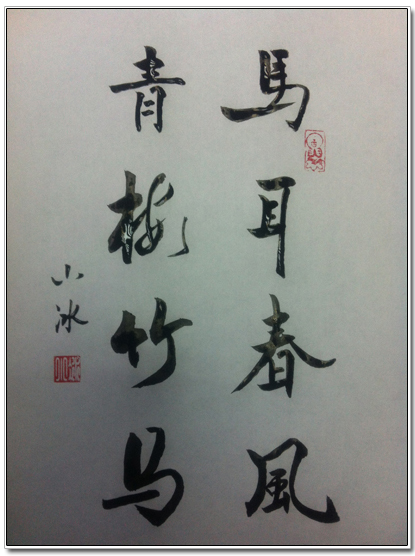 馬耳春風
青梅竹马
小冰